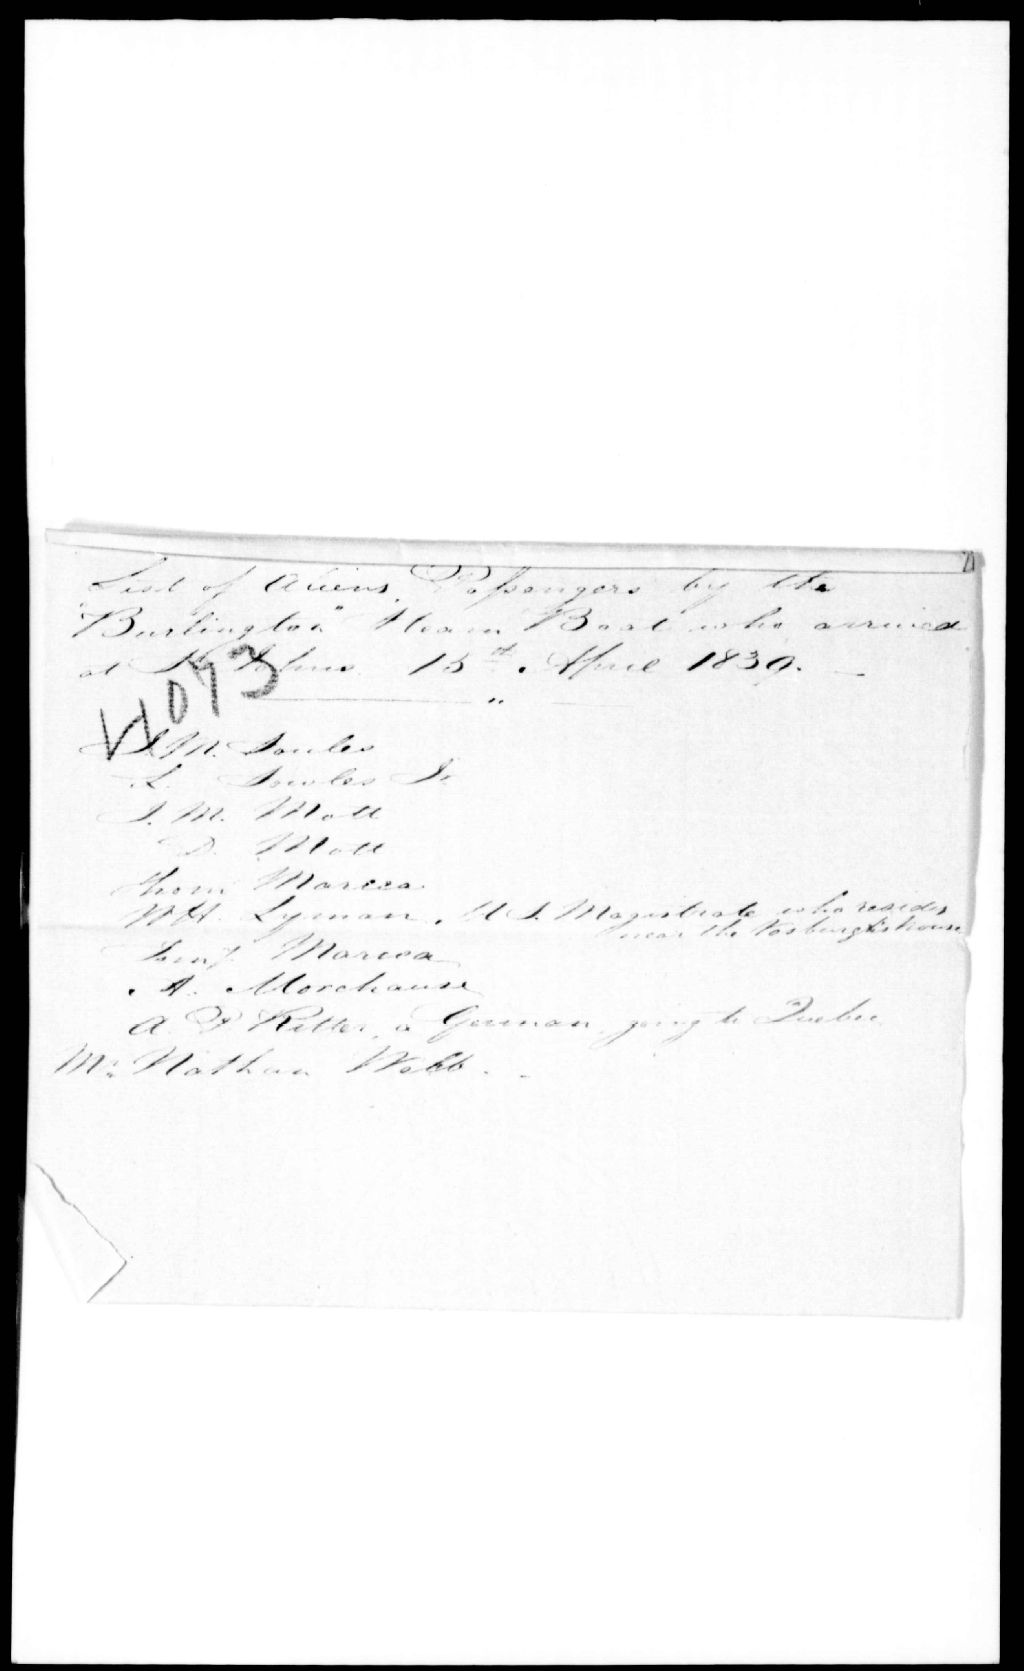 List of Aliens, Passengers by the
"Burlington" Steam Boat who arrived
at St Johns 15th April 1839.
11093
M. Soules
L. Soules Jr
J. M. Mott
D. Mott
Thom Marcea
W H. Lyman, U S. Magistrate who resides
near the Vosburghs house
Marcea
A. Morehouse
A. P Ritter, a German, going to Quebec
Mr Nathan Webb